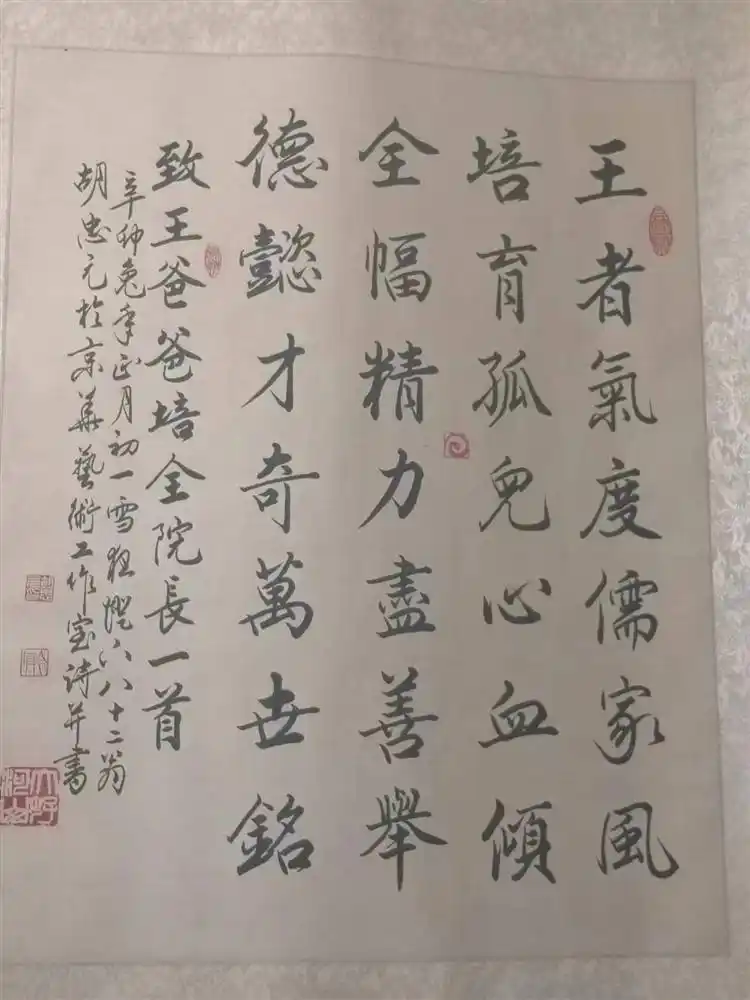 王者氣度儒家風
培育孤兒心血傾
全幅精力盡善舉
德懿才奇萬世銘
致王爸爸培全院長一首
辛卯兔年正月初一雪狂八十二翁
胡忠元於京華藝術工作室詩并書
大好河山